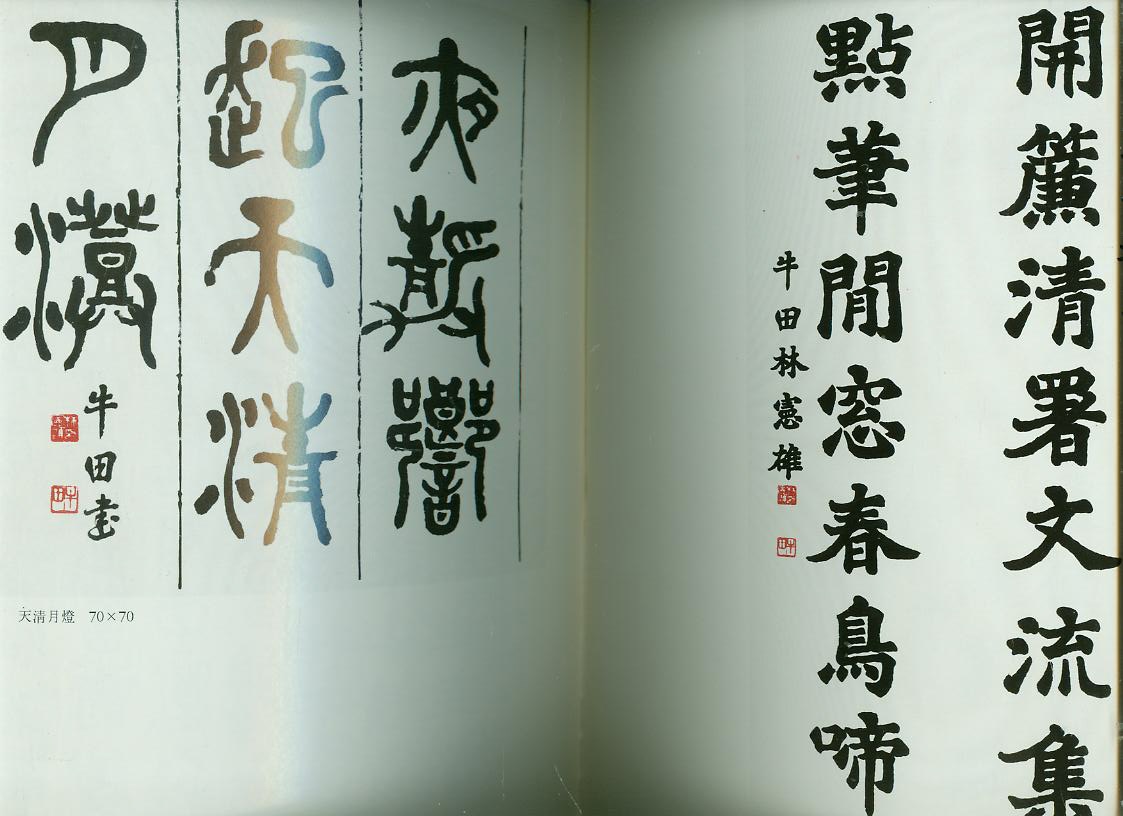 開簾清署文流集
點筆閒窓春鳥啼
牛田林憲雄
夜靜響
起天清
月
牛田書
天清月燈 70×70